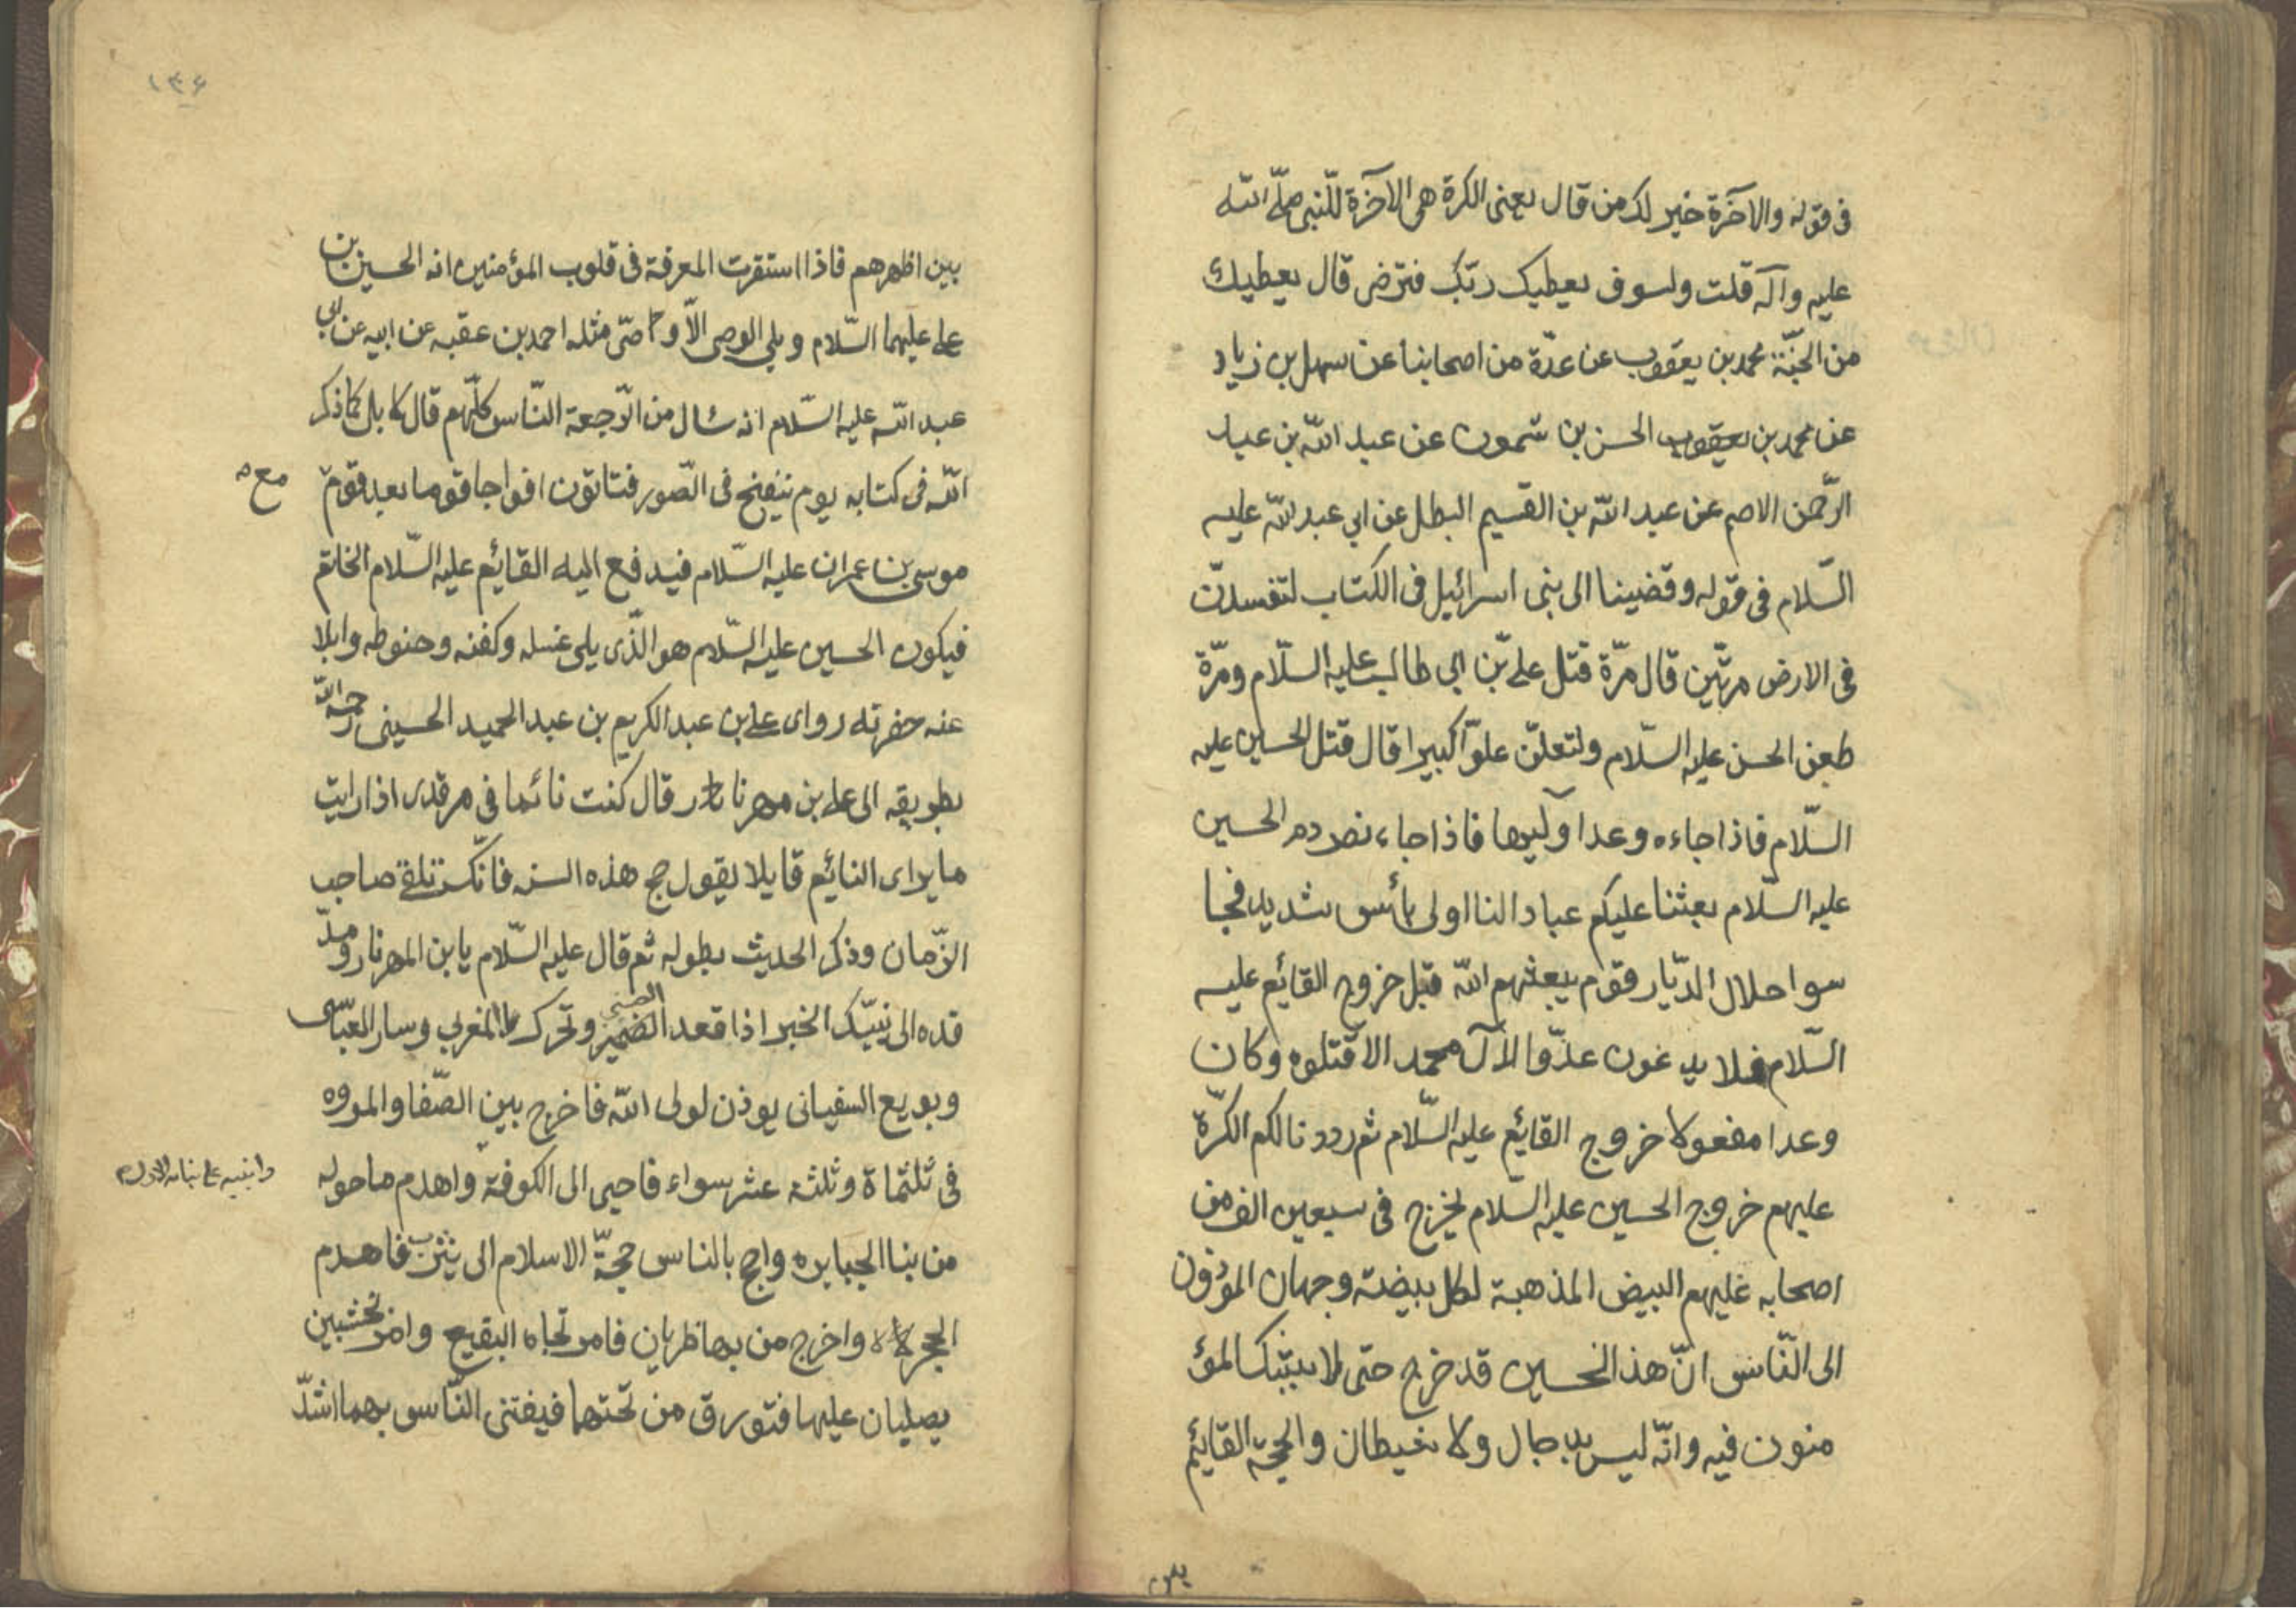 فى قوله والآخرة خير لك من قال يعنى الكرة هى الآخرة للنّبى صلّى اللّه
عليه وآله قلت ولسوف يعطيك ربّك فترضى قال يعطيك
من الجنّة محمد بن يعقوب عن عدّة من اصحابنا عن سهل بن زياد
عن محمد بن يعقوب الحسن بن شمون عن عبد اللّه بن عبد
الرّحمن الاصم عن عبد اللّه بن القسيم البطل عن ابى عبد اللّه عليه
السّلام فى قوله وقضينا الى بنى اسرائيل فى الكتاب لتفسدنّ
فى الارض مرتّين قال مرّة قتل على بّن ابى طالب عليه السلّام ومرّة
طعن الحسن عليه السّلام ولتعلنّ علوّاً كبيرا قال قتل الحسين عليه
السّلام فاذا جاءه وعدا وآليها فاذا جاء نصر دم الحسين
عليه السّلام بعثنا عليكم عبادا لنا اولى بأس شديد فجا
سوا حلال الدّيار قوم يبعثهم اللّه قبل خروج القائم عليه
السّلام فلا يدغون عدّوا لآل محمد الا قتلوه وكان
وعدا مفعولا خروج القائم عليه السّلام ثم رددنا لكم الكرّة
عليهم خروج الحسين عليه السّلام يخرج فى سبعين الف من
اصحابه عليهم البيض المذهبة لكل بيضة وجهان المؤذون
الى النّاس انّ هذ الحسين قد خرج حتى لا يبتك المؤ
منون فيه وانّه ليس بدجال ولا شيطان والحجّة القايم
يقوم
١٣۶
بين اظهرهم فاذا استقرت المعرفة فى قلوب المؤمنين انه الحسين بن
على عليهما السّلام و يلى الوصى الاّ وصىّ مثله احمد بن عقبه عن ابيه عن ابى
عبد اللّه عليه السّلام انه سئال من الرّجعة النّاس كلّهم قال لا بل كما ذكر
اللّه فى كتابه يوم ينفخ فى الصّور فتاتون افواجا قوما بعد قوم مع ه
موسى بن عمران عليه السّلام فيدفع اليه القائم عليه السّلام الخاتم
فيكون الحسين عليه السّلام هو الّذى يلى غسله وكفنه وحنوطه وابلا
عنه حفرته رواى على بن عبد الكريم بن عبد الحميد الحسينى رحمه اللّه
بطويقه الى على بن مهرنار قال كنت نائما فى مرقدى اذا رايت
ما يراى النائم قايلا يقول حج هذه السنه فانّك تلقى صاحب
الزّمان وذكر الحديث بطوله ثم قال عليه السّلام يا بن المهرنار ومدّ
قده الى نبيّك الخبر اذا قعد الضمير الصينى وتحرك المغربى وسار العبّاسى
وبويع السفيانى يوذن لولى اللّه فاخرج بين الصّفا والمروه
فى ثلثماة وثلثة عشر سواء فاحيى الى الكوفة واهدم ماحوله وابنيه على بنائه الاول
من بنا الجبابره واحج بالناس حجّة الاسلام الى يثرب فاهدم
الحجرة واخرج من بها ظريان فامر تجاه البقيع وامر بخشبين
يصليان عليها فتورق من تحتهما فيفتنى النّاس بهما اشدّ